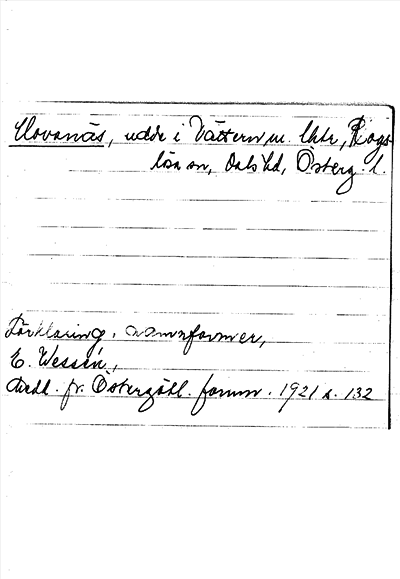 Clovanäs, udde i Vättern, m. Chtr, Rogs-
lösa sn, Dals hd, Österg. l.
Förklaring, namnformer,
E. Wessén,
Medd. fr. Östergötl. fornm. 1921 s. 132